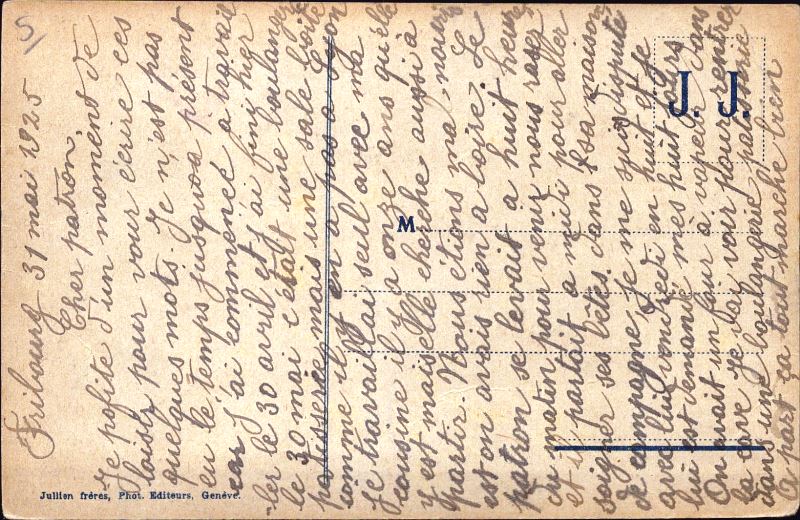 5
Fribourg 31 mai 1925
Cher patron,
Je pofite d'un moment de
loisir pour vour écrire ces
quelques mots. Je n'est pas
eu le temps jusqu'a présent
car J'ai commencé a travail
ler le 30 avril et J'ai fini hier
le 30 mai c'était une boulangerie
patisserie mais une sale boite
comme il y en a pas a
Je travaillai seul avec ma
cousine il y a onze ans qu'elle
y est mais elle cherche aussi à
partir. Nous étions ma
est on avais rien a Le
patron se levait a huit heures
du matin pour venir nous
et il partait a midi pour aller
soigner ses bêtes dans sa maison
de campagne, Je me suis disputé
avec lui vendredi en huit et Je
lui est demandé mes huit Jours
On avait un four à vapeur dans
la cave Je vai voir pour rentrer
dans une boulangerie patisserie
A part ça tout marche bien
J. J.
M
Jullien frères, Phot. Editeurs, Genève.